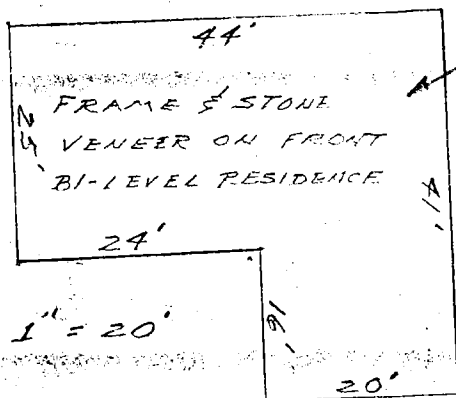 44'
25'
FRAME & STONE
VENEER ON FRONT
BI-LEVEL RESIDENCE
41'
24'
1" = 20'
16'
20'